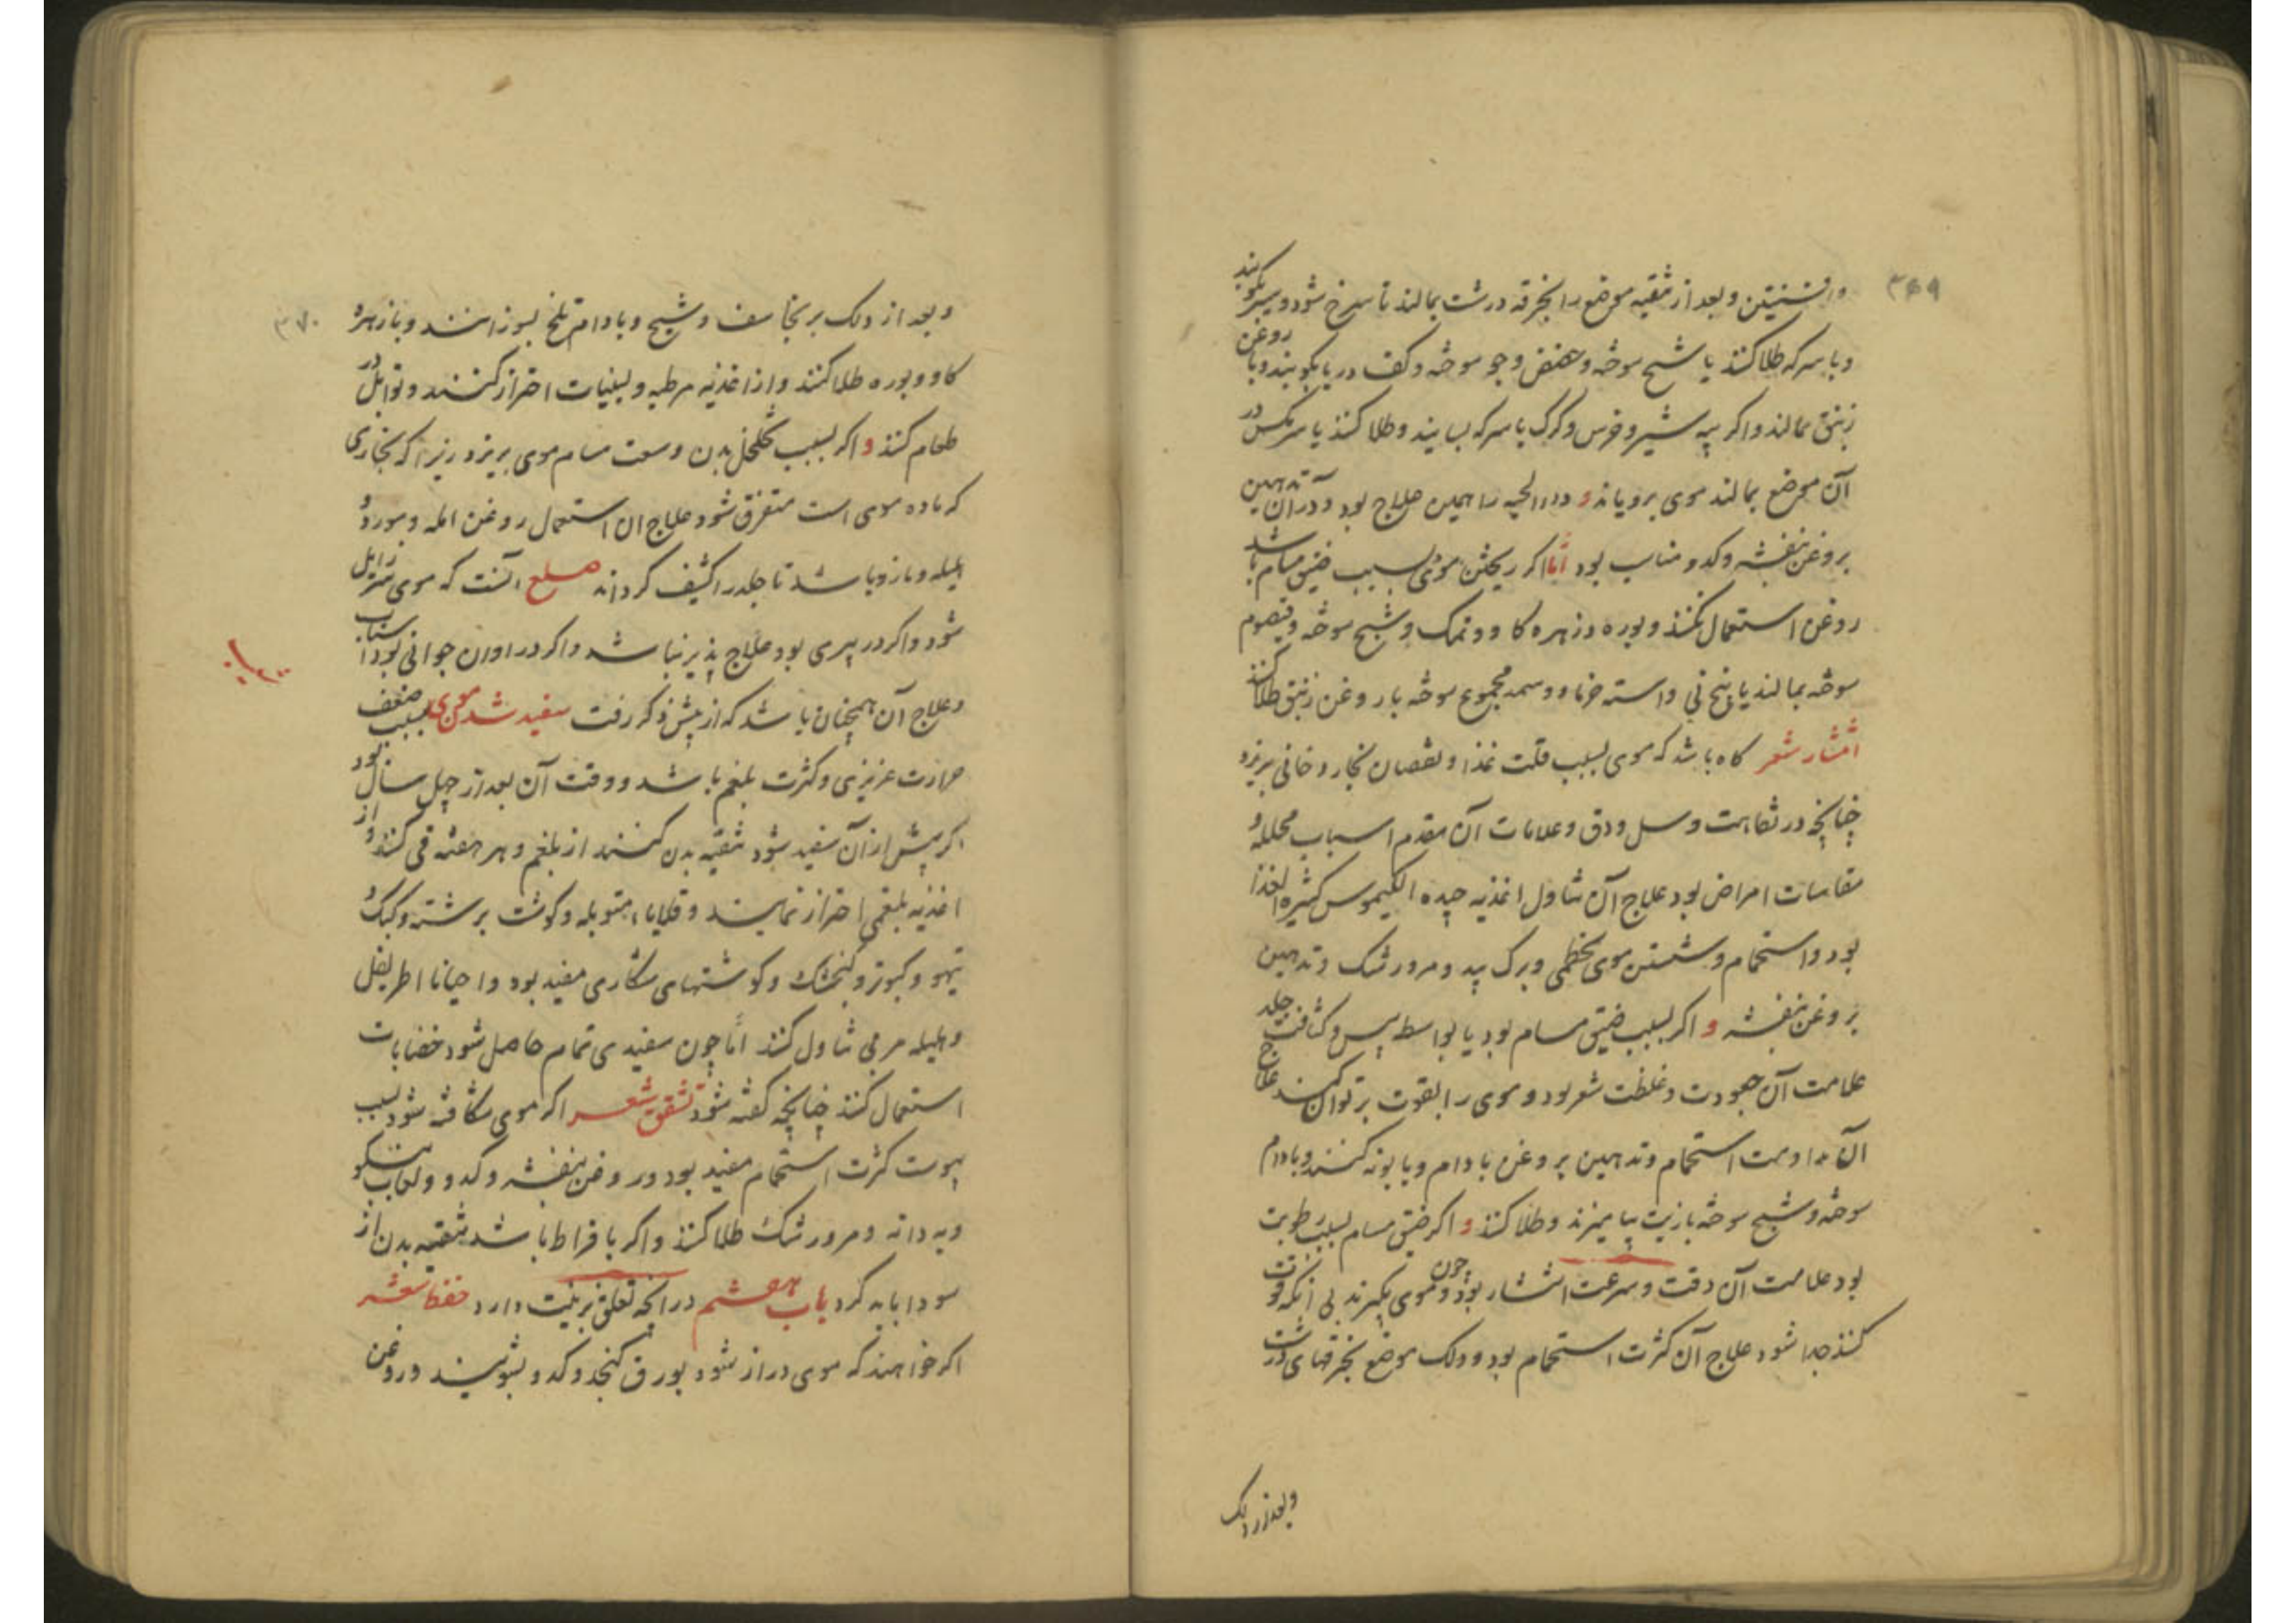 ۳۶۹
وافسنتین و بعد از تنقیه موضع را بخرقه درشت بمالند تا سرخ شود و سیر بکوبند
و با سرکه طلا کنند یا شیح سوخته و حضض و جو سوخته و کف دریا بکوبند و با روغن
زنبق بمالند و اکر پیه شیر و خرس و کرک با سرکه بسایند و طلا کنند یا سر مکس در
آن موضع بمالند موی برویاند و داء الحیه را همین علاج بود و در آن تدهین
بروغن بنفشه و کدو مناسب بود اما اکر ریختن موی بسبب ضیق مسام باشد
روغن استعمال نکنند و بوره و زهره کاو و نمک و شیح سوخته و قیصوم
سوخته بمالند یا بیخ نی و استه خرما و وسمه مجموع سوخته با روغن زنبق طلا کنند
انتشار شعر کاه باشد که موی بسبب قلت غذا و نقصان بخار دخانی بریزد
چنانچه در نقاهت و سل و دق و علامات آن مقدم اسباب محلله و
مقاسات امراض بود علاج آن تناول اغذیه جیده الکیموس کثیره الغذا
بود و استحمام و شستن موی بخطمی و برک بید و مرورشک و تدهین
بروغن بنفشه و اکر بسبب ضیق مسام بود یا بواسطه یبس و کثافت جلد
علامت آن جعودت و غلظت شعر بود و موی را بقوت بر توان کند علاج
آن مداومت استحمام و تدهین بروغن بادام و بابونه کنند و بادام
سوخته و شیح سوخته با زیت بیامیزند و طلا کنند و اکر ضیق مسام بسبب رطوبت
بود علامت آن دقت و سرعت انتشار بود و چون موی بکیرند بی آنکه قوت
کنند جدا شود علاج آن کثرت استحمام بود و دلک موضع بخرقهای درشت
و بعد از دلک
۳۷۰
و بعد از دلک برنجاسف و شیح و بادام تلخ بسوزانند و با زهره
کاو و بوره طلا کنند و از اغذیه مرطبه و لبنیات احتراز کنند و توابل در
طعام کنند و اکر بسبب تخلخل بدن و سعت مسام موی بریزد زیرا که بخاری
که ماده موی است متفرق شود علاج آن استعمال روغن امله و مورد و
هلیله و مازو باشد تا جلد را کثیف کرداند صلع آنست که موی سر زایل
شود و اکر در پیری بود علاج پذیر نباشد و اکر در اوان جوانی بود اسباب
و علاج آن همچنان باشد که از پیش ذکر رفت سفید شدن موی بسبب ضعف
حرارت غریزی و کثرت بلغم باشد و وقت آن بعد از چهل سال بود
اکر پیش از آن سفید شود تنقیه بدن کنند از بلغم و هر هفته قی کنند و از
اغذیه بلغمی احتراز نمایند و قلایاء متوبله و کوشت برشته و کبک و
تیهو و کبوتر و کنجشک و کوشتهای شکاری مفید بود و احیانا اطریفل
و هلیله مربی تناول کنند اما چون سفیدی تمام حاصل شود خضابات
استعمال کنند چنانچه کفته شود تشقق شعر اکر موی شکافته شود بسبب
یبوست کثرت استحمام مفید بود و روغن بنفشه و کدو و لعاب
و به دانه و مرورشک طلا کنند و اکر با فراط باشد تنقیه بدن از
سودا باید کرد باب هشتم در آنچه تعلق بزینت دارد حفظ شعر
اکر خواهند که موی دراز شود بورق کنجد و کدو بشویند و روغن